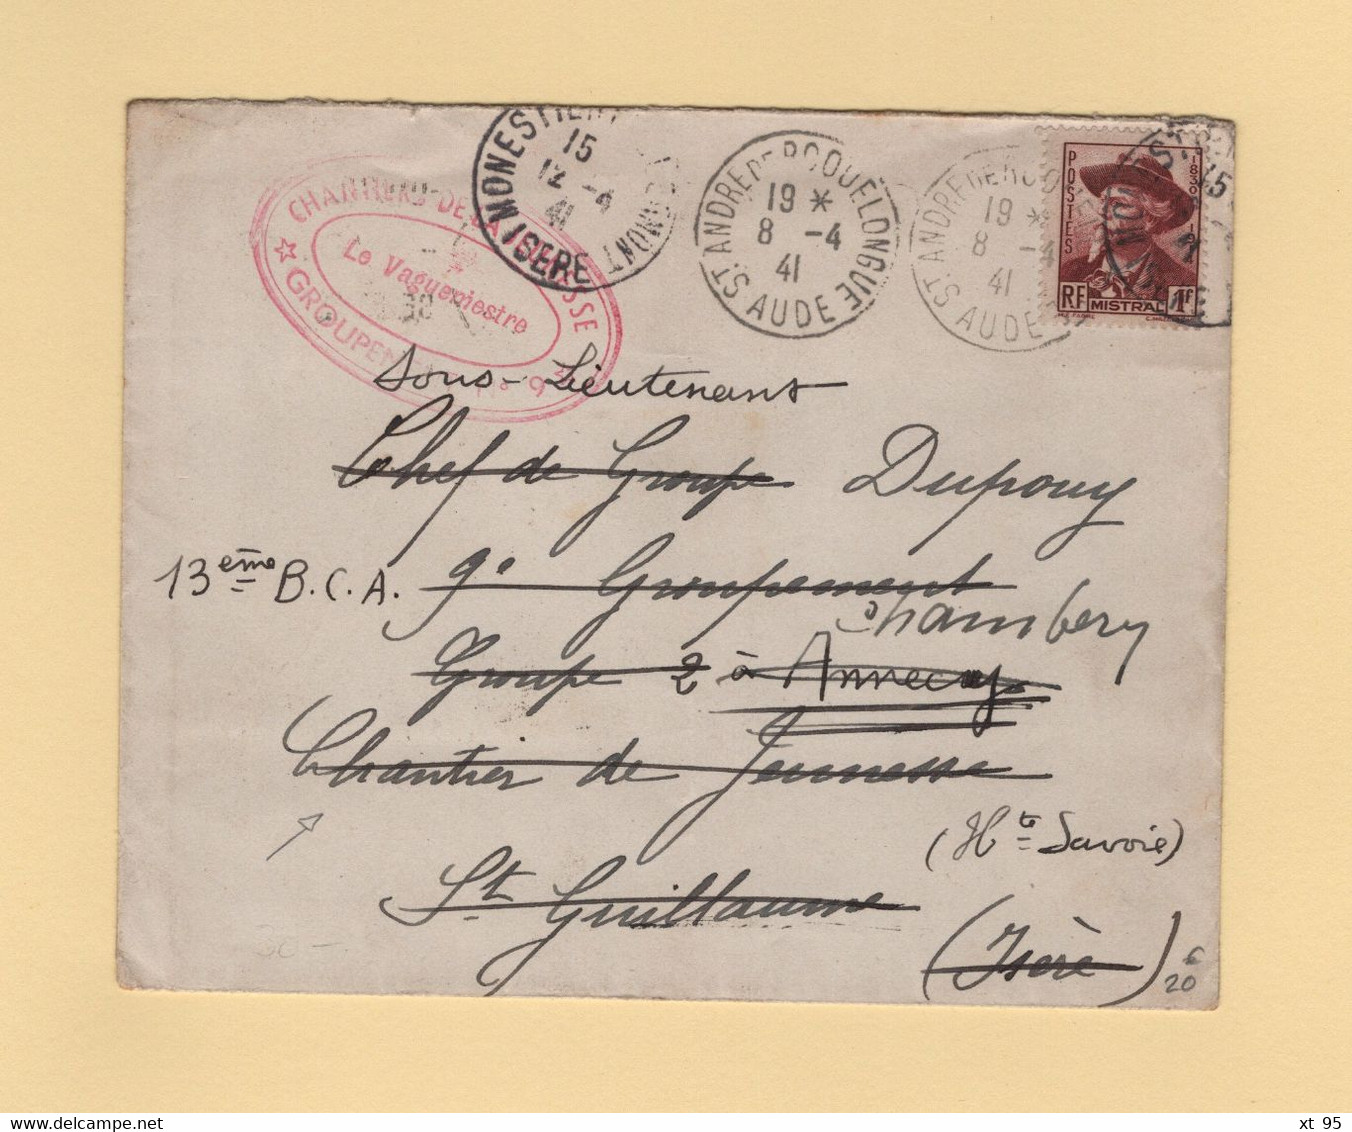 MONESTIER CLERMONT
15
12 -4
41
ISERE
ST ANDRE DE ROQUELONGUE
19 *
8 -4
41
AUDE
ST ANDRE DE ROQUELONGUE
19 *
8 -4
41
AUDE
POSTES
1830-1914
RF MISTRAL 1F
CHANTIERS DE LA JEUNESSE
Le Vaguemestre
GROUPEMENT N° 9
Sous-Lieutenant
Chef de Groupe Dupouy
13ème B.C.A. 9e Groupement
Chambery
Groupe 2 à Annecy
Chantier de Jeunesse
(Hte Savoie)
St Guillaume
(Isère)
20
xt 95